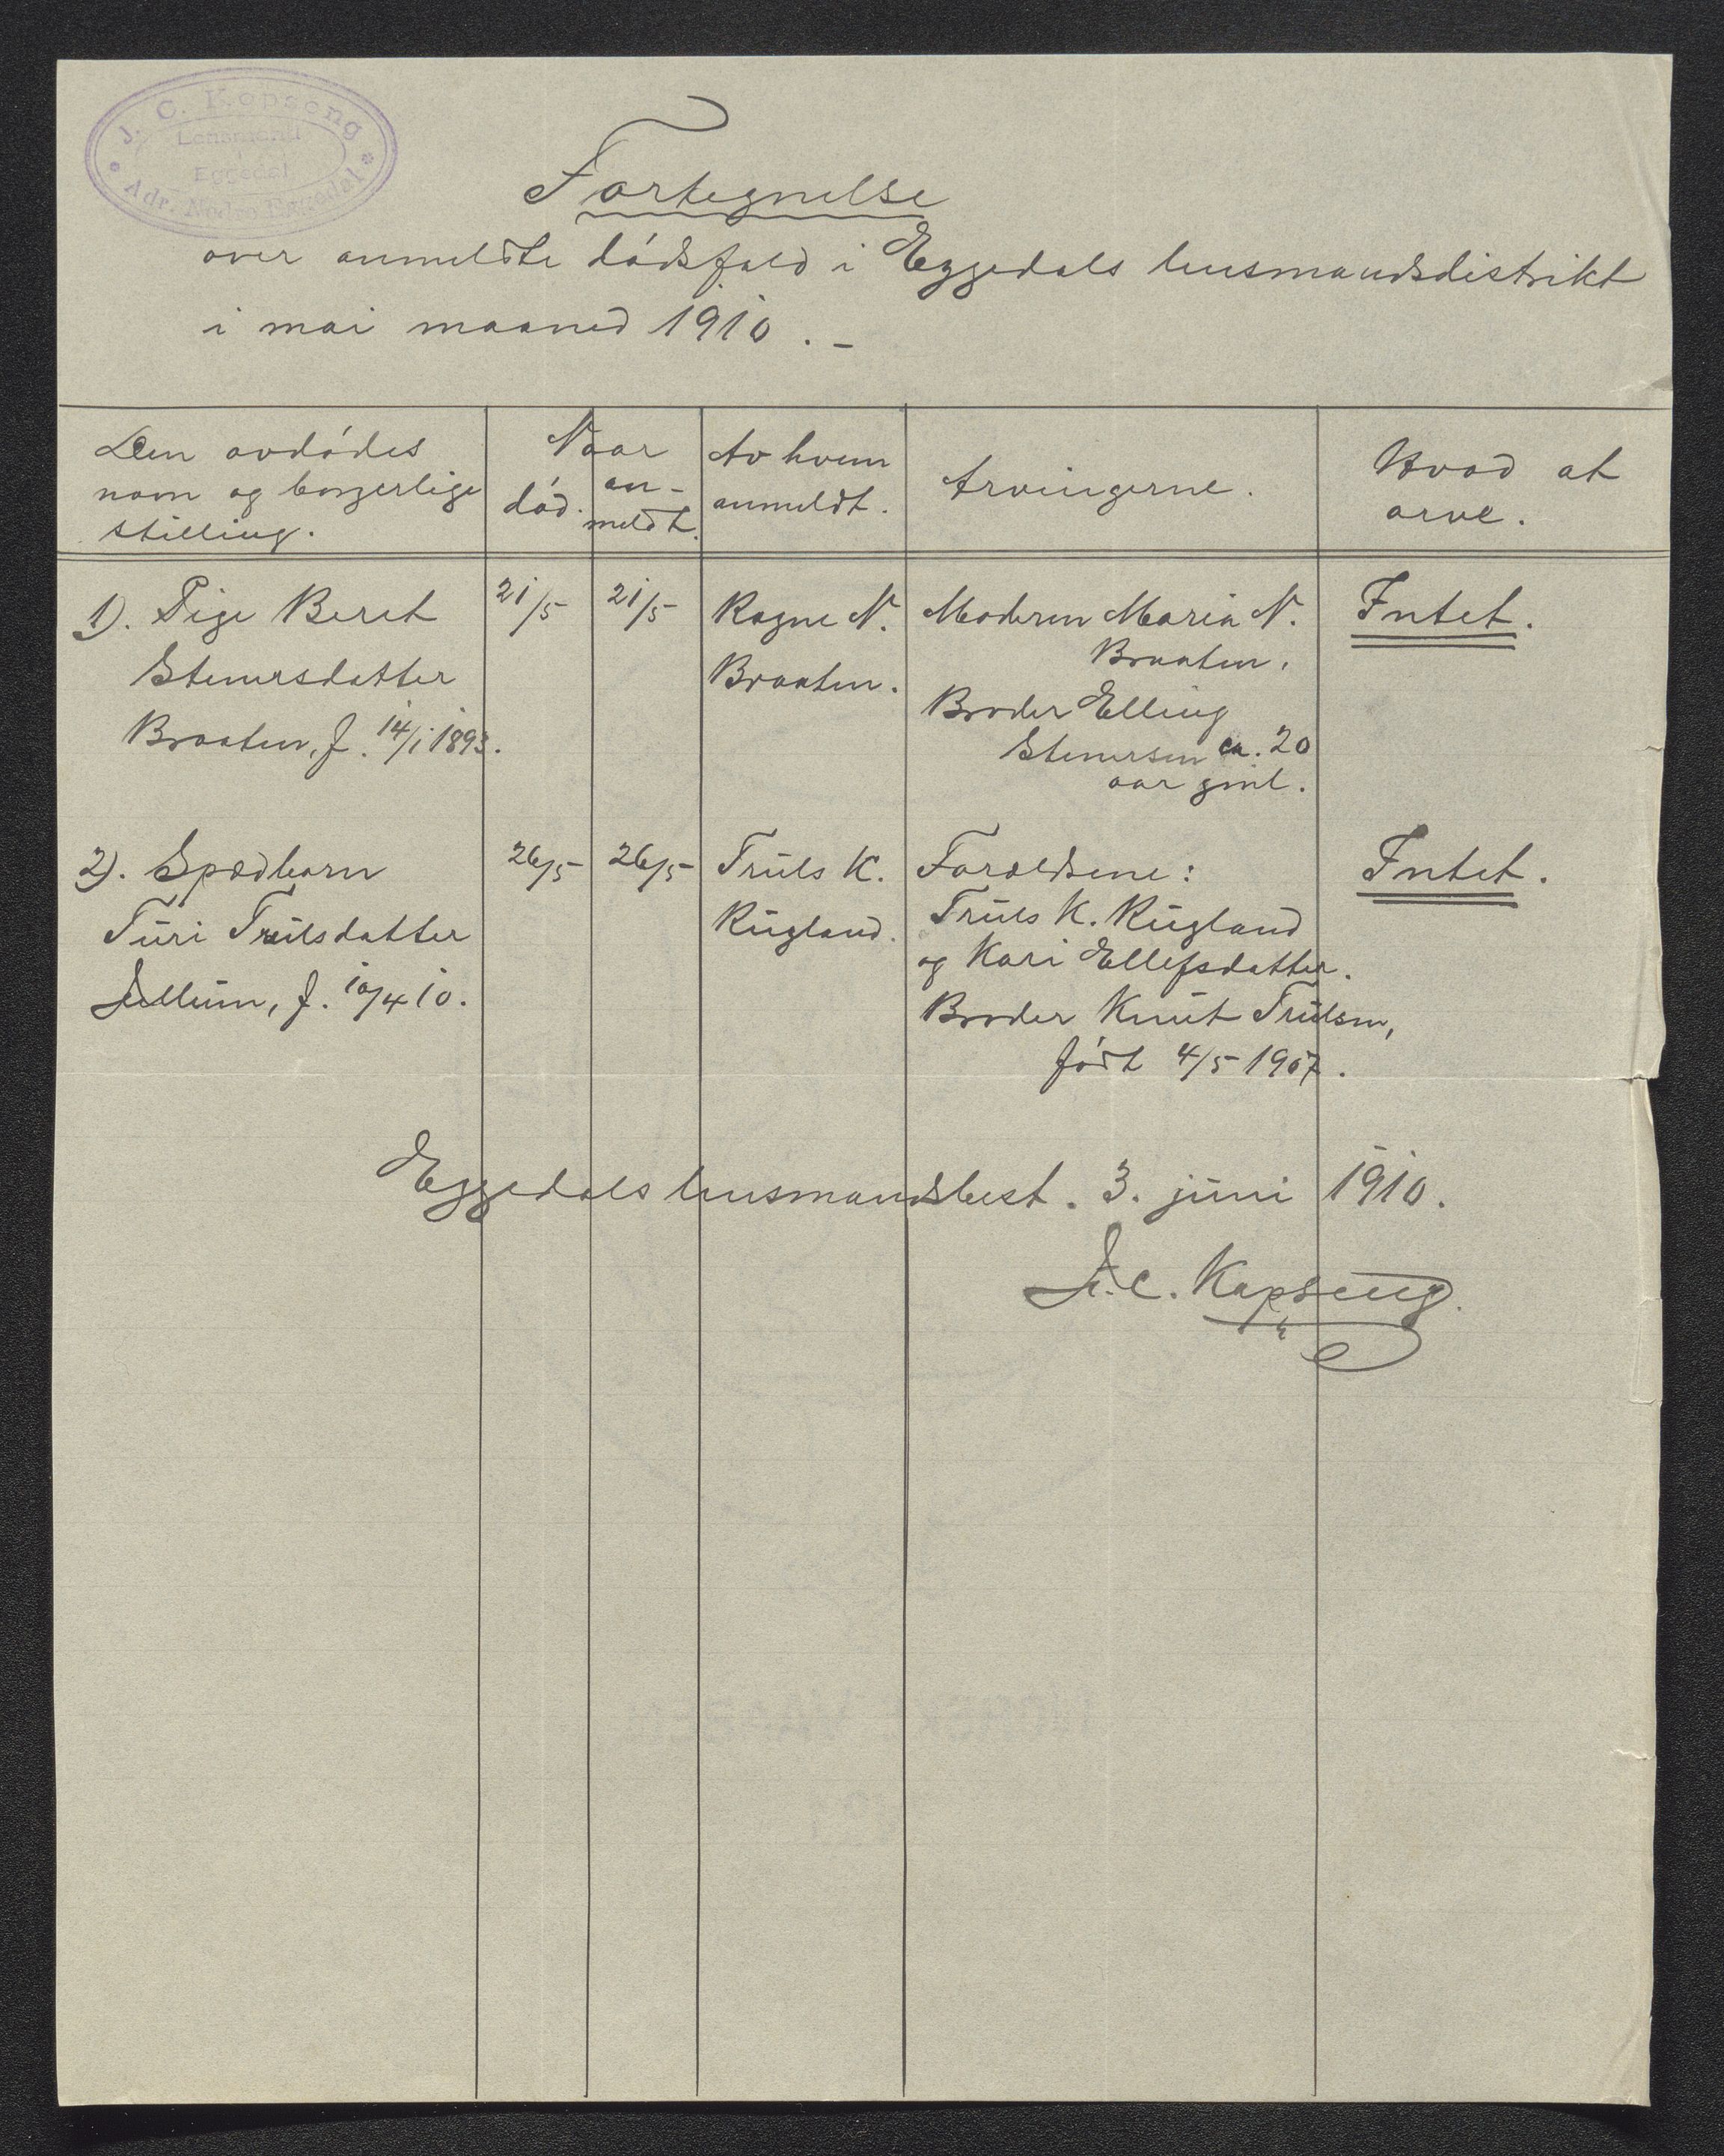 J. C. Kopseng
Lensmand
i
Eggedal
Adr. Nedre Eggedal
Fortegnelse
over anmeldte dødsfald i Eggedals lensmandsdistrikt
i mai maaned 1910. –
Den avdødes
navn og borgerlige
stilling.
Naar
død.
an-
meldt.
Av hvem
anmeldt.
Arvingerne.
Hvad at
arve.
1). Pige Beret
Stenersdatter
Braaten, f. 14/1 1893.
21/5
21/5
Ragne N.
Braaten.
Moderen Maria N.
Braaten.
Broder Elling
Stenersen ca. 20
aar gml.
Intet.
2). Spædbarn
Turi Trulsdatter
Jellum, f. 10/4 10.
26/5
26/5
Truls K.
Rugland.
Forældrene:
Truls K. Rugland
og Kari Ellefsdatter.
Broder Knut Trulsen,
født 4/5 1907.
Intet.
Eggedals lensmandsbest. 3. juni 1910.
J. C. Kopseng.